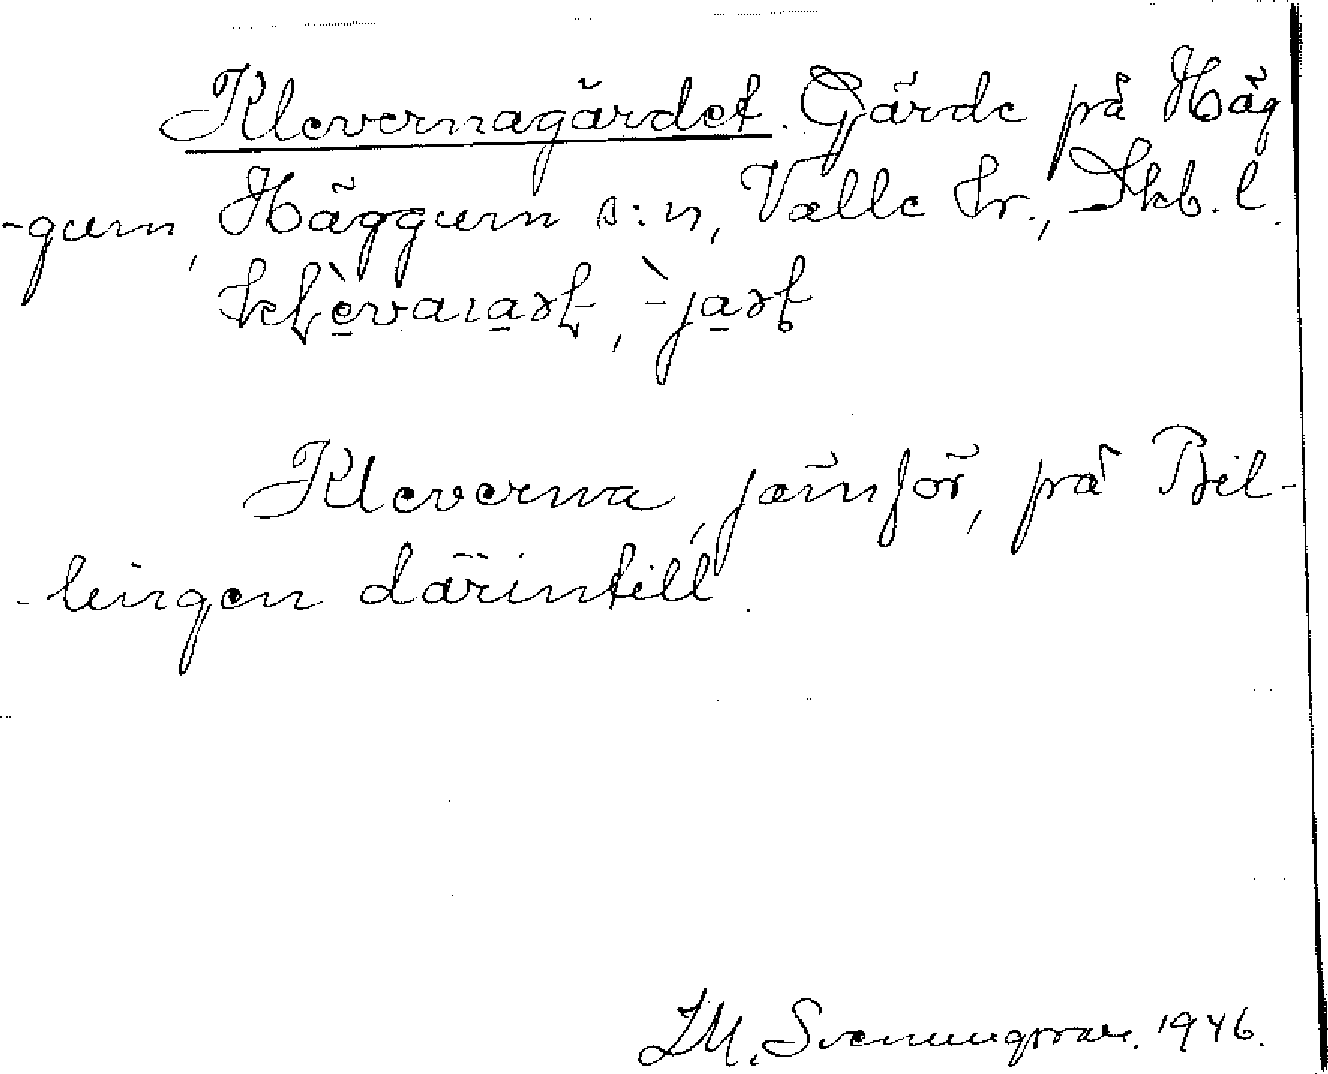 Klevernagärdet. Gärde på Häg
-gum, Häggum s:n, Valle hr., Skb. l.
Kleverna, jämför, på Bil-
-lingen därintill.
Svenungsson. 1946.